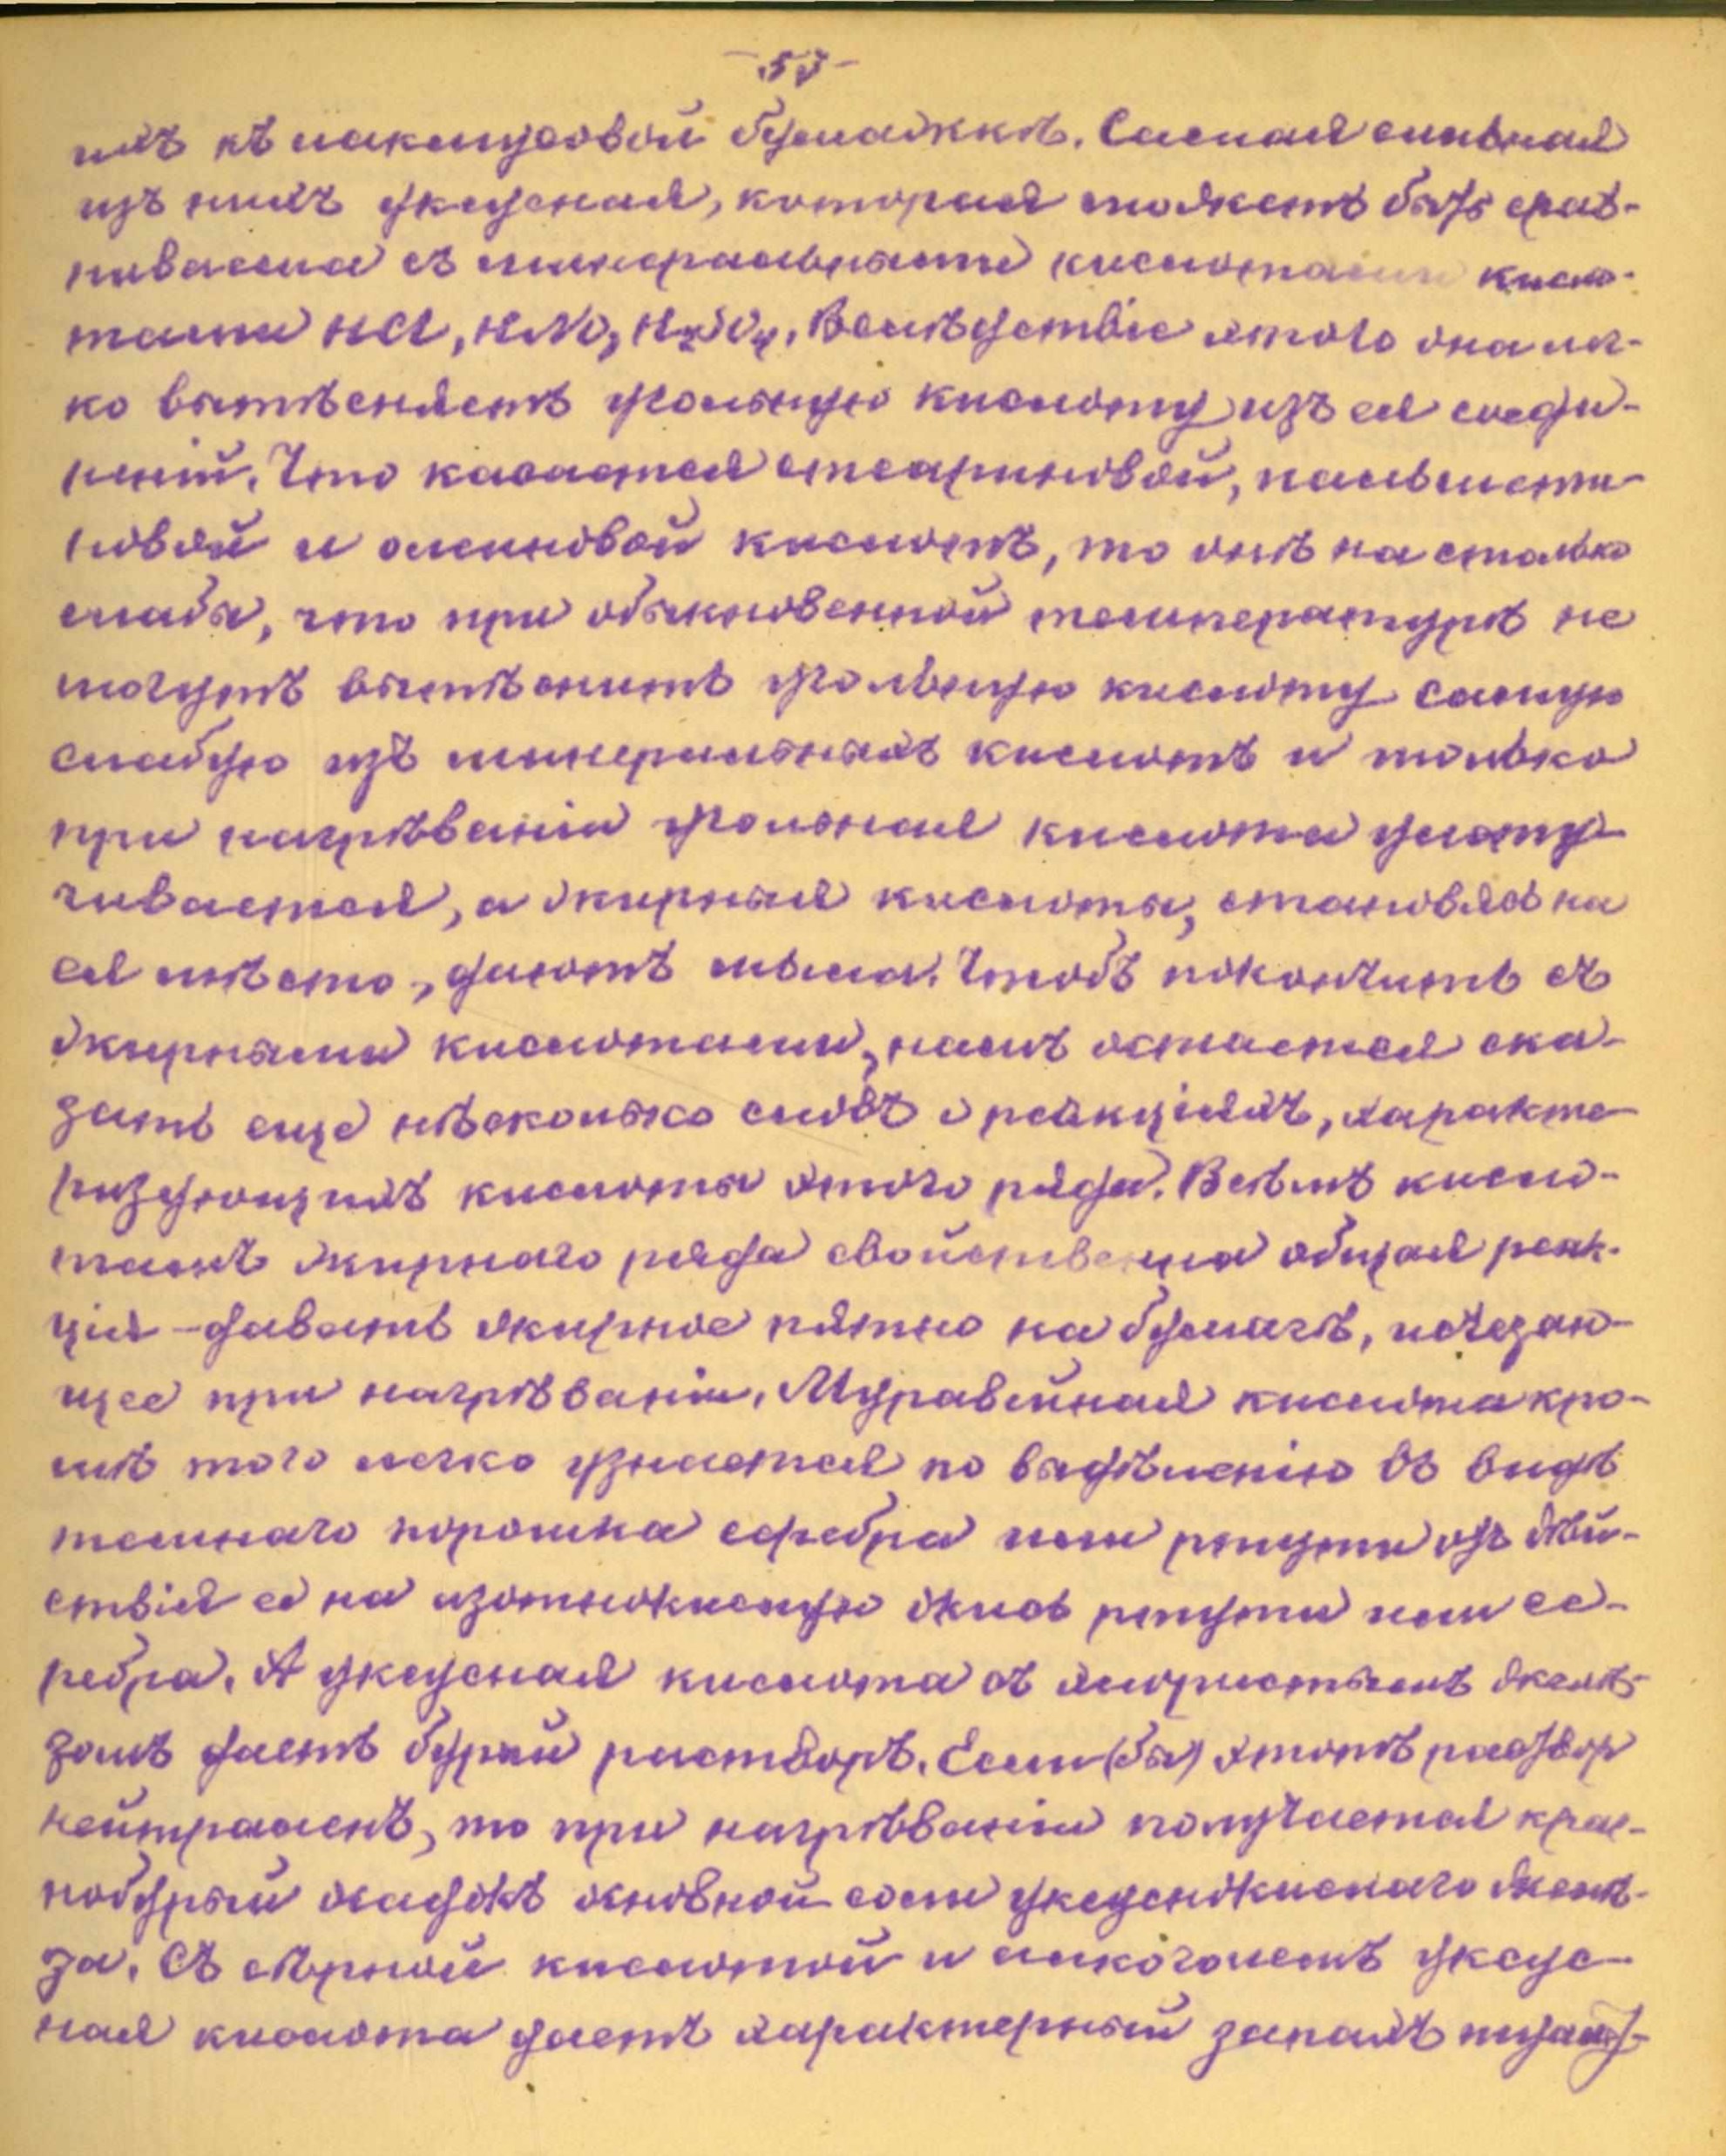 -53-
нихъ къ лакмусовой бумажкѣ. Самая сильная
изъ нихъ уксусная, которая можетъ быть срав-
ниваема съ минеральными кислотами кисло-
тами HCl, HNO3, H2SO4. Вслѣдствіе этого она лег-
ко вытѣсняетъ угольную кислоту изъ ея соеди-
неній. Что касается стеариновой, пальмити-
новой и олеиновой кислотъ, то онѣ на столько
слабы, что при обыкновенной температурѣ не
могутъ вытѣснить угольную кислоту самую
слабую изъ минеральныхъ кислотъ и только
при нагрѣваніи угольная кислота улету-
чивается, а жирныя кислоты, становясь на
ея мѣсто, даютъ мыла. Чтобъ покончить съ
жирными кислотами, намъ остается ска-
зать еще нѣсколько словъ о реакціяхъ, характе-
ризующихъ кислоты этого ряда. Всѣмъ кисло-
тамъ жирнаго ряда свойственна общая реак-
ція - давать жирное пятно на бумагѣ, исчезаю-
щее при нагрѣваніи. Муравейная кислота кро-
мѣ того легко узнается по выдѣленію въ видѣ
темнаго порошка серебра или ртути отъ дѣй-
ствія ея на азотнокислую окись ртути или се-
ребра. А уксусная кислота съ хлористымъ желѣ-
зомъ даетъ бурый растворъ. Если (бы) этотъ раствор
нейтраленъ, то при нагрѣваніи получается крас-
нобурый осадокъ основной соли уксуснокислаго желѣ-
за. Съ сѣрной кислотой и алкоголемъ уксус-
ная кислота даетъ характерный запахъ